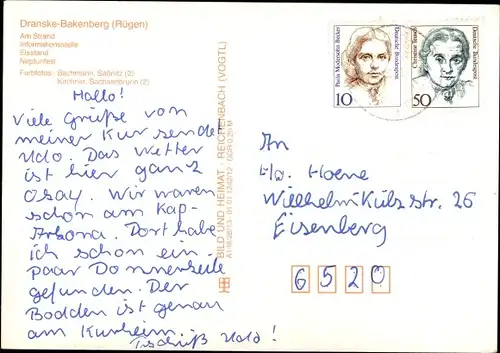 Dranske-Bakenberg (Rügen)
Am Strand
Informationsstelle
Eisstand
Neptunfest
Farbfotos: Bachmann, Saßnitz (2)
Kirchner, Sachsenbrunn (2)
Hallo!
Viele Grüße von
meiner Kur sendet
Udo. Das Wetter
ist hier ganz
Osay. Wir waren
schon am Kap-
Arkona. Dort habe
ich schon ein
paar Donnerkeile
gefunden. Der
Bodden ist genau
am Kurheim.
Tschüß Udo!
BILD UND HEIMAT · REICHENBACH (VOGTL)
DDR 0,20 M
Paula Modersohn-Becker
Deutsche Bundespost
10
Christine Teusch
Deutsche Bundespost
50
An
Hoene
Wilhelm Külz str. 26
Eisenberg
6520